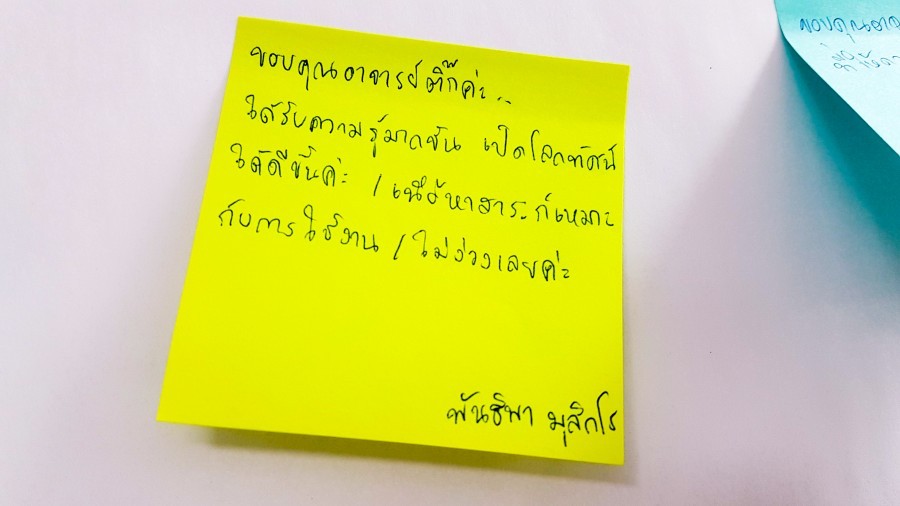 ขอบคุณอาจารย์ติ๊กค่ะ..
ได้รับความรู้มากขึ้น เปิดโลกทัศน์
ได้ดีขึ้นค่ะ / เนื้อหาสาระก็เหมาะ
กับการใช้งาน / ไม่ง่วงเลยค่ะ
พันธิพา มุสิกโร
ขอบคุณอาจ